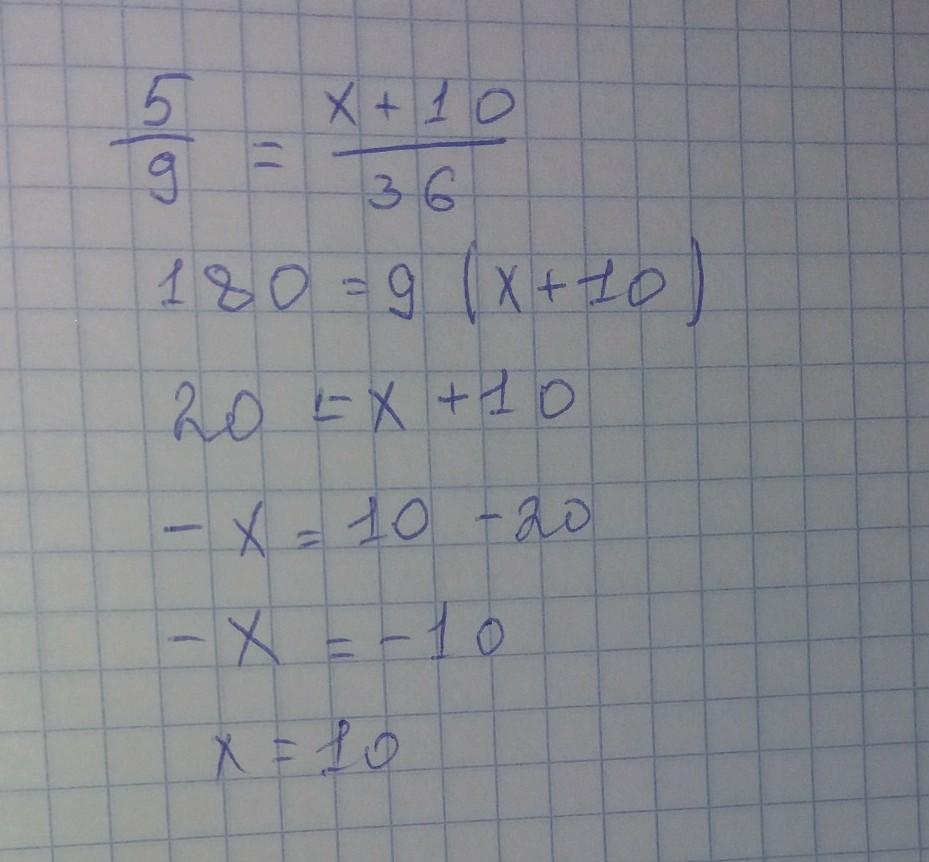 5/9 = x+10/36
180 = 9 (x+10)
20 = x +10
- x = 10 -20
- x = -10
x = 10